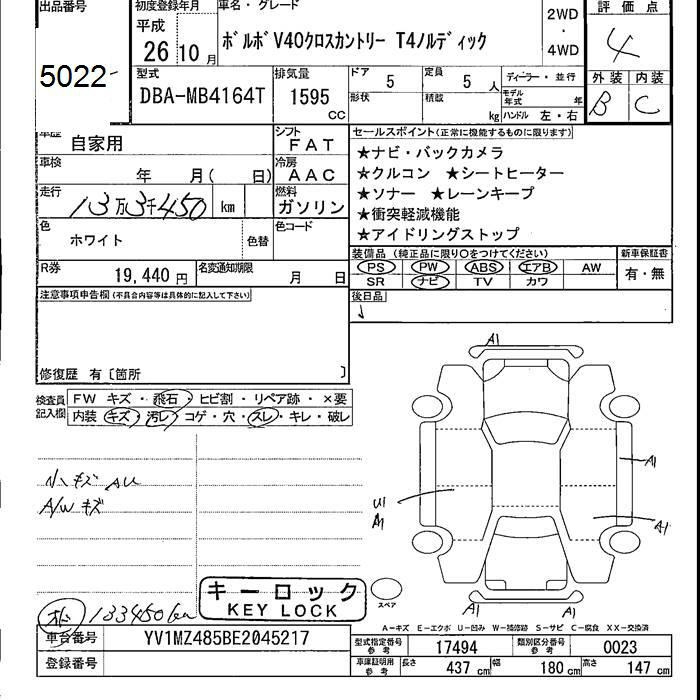 出品番号 初度登録年月 車名・グレード 評価点
平成
26 年 10 月 ボルボV40クロスカントリー T4ノルディック
2WD
・
4WD
4
5022
型式 排気量 ドア 定員 ディーラー・並行 外装 内装
DBA-MB4164T 1595 CC 5 5 人
形状 積載 kg モデル年式 年
ハンドル 左・右
B C
車歴 自家用 シフト FAT
車検 年 月( 日) 冷房 AAC
走行 13万3千450 km 燃料 ガソリン
色 ホワイト 色替 色コード
R券 19,440 円 名変通知期限 月 日
セールスポイント(正常に機能するものに限ります)
★ナビ・バックカメラ
★クルコン ★シートヒーター
★ソナー ★レーンキープ
★衝突軽減機能
★アイドリングストップ
装備品(純正品に限り○をつけてください) 新車保証書
PS PW ABS エアB AW 有・無
SR ナビ TV カワ
後日品
注意事項申告欄(不具合内容等は具体的に記入して下さい)
修復歴 有〔箇所 〕
検査員記入欄 FW キズ・飛石・ヒビ割・リペア跡・×要
内装 キズ・汚レ・コゲ・穴・スレ・キレ・破レ
小キズ AU
A/W キズ
133450km
A1
A1
U1
A1
A1
A1
A1
キーロック
KEY LOCK
スペア
A-キズ E-エクボ U-凹み W-補修跡 S-サビ C-腐食 XX-交換済
車台番号 YV1MZ485BE2045217 型式指定番号 参考 17494 類別区分番号 参考 0023
登録番号 車庫証明用 参考 長さ 437 cm 幅 180 cm 高さ 147 cm